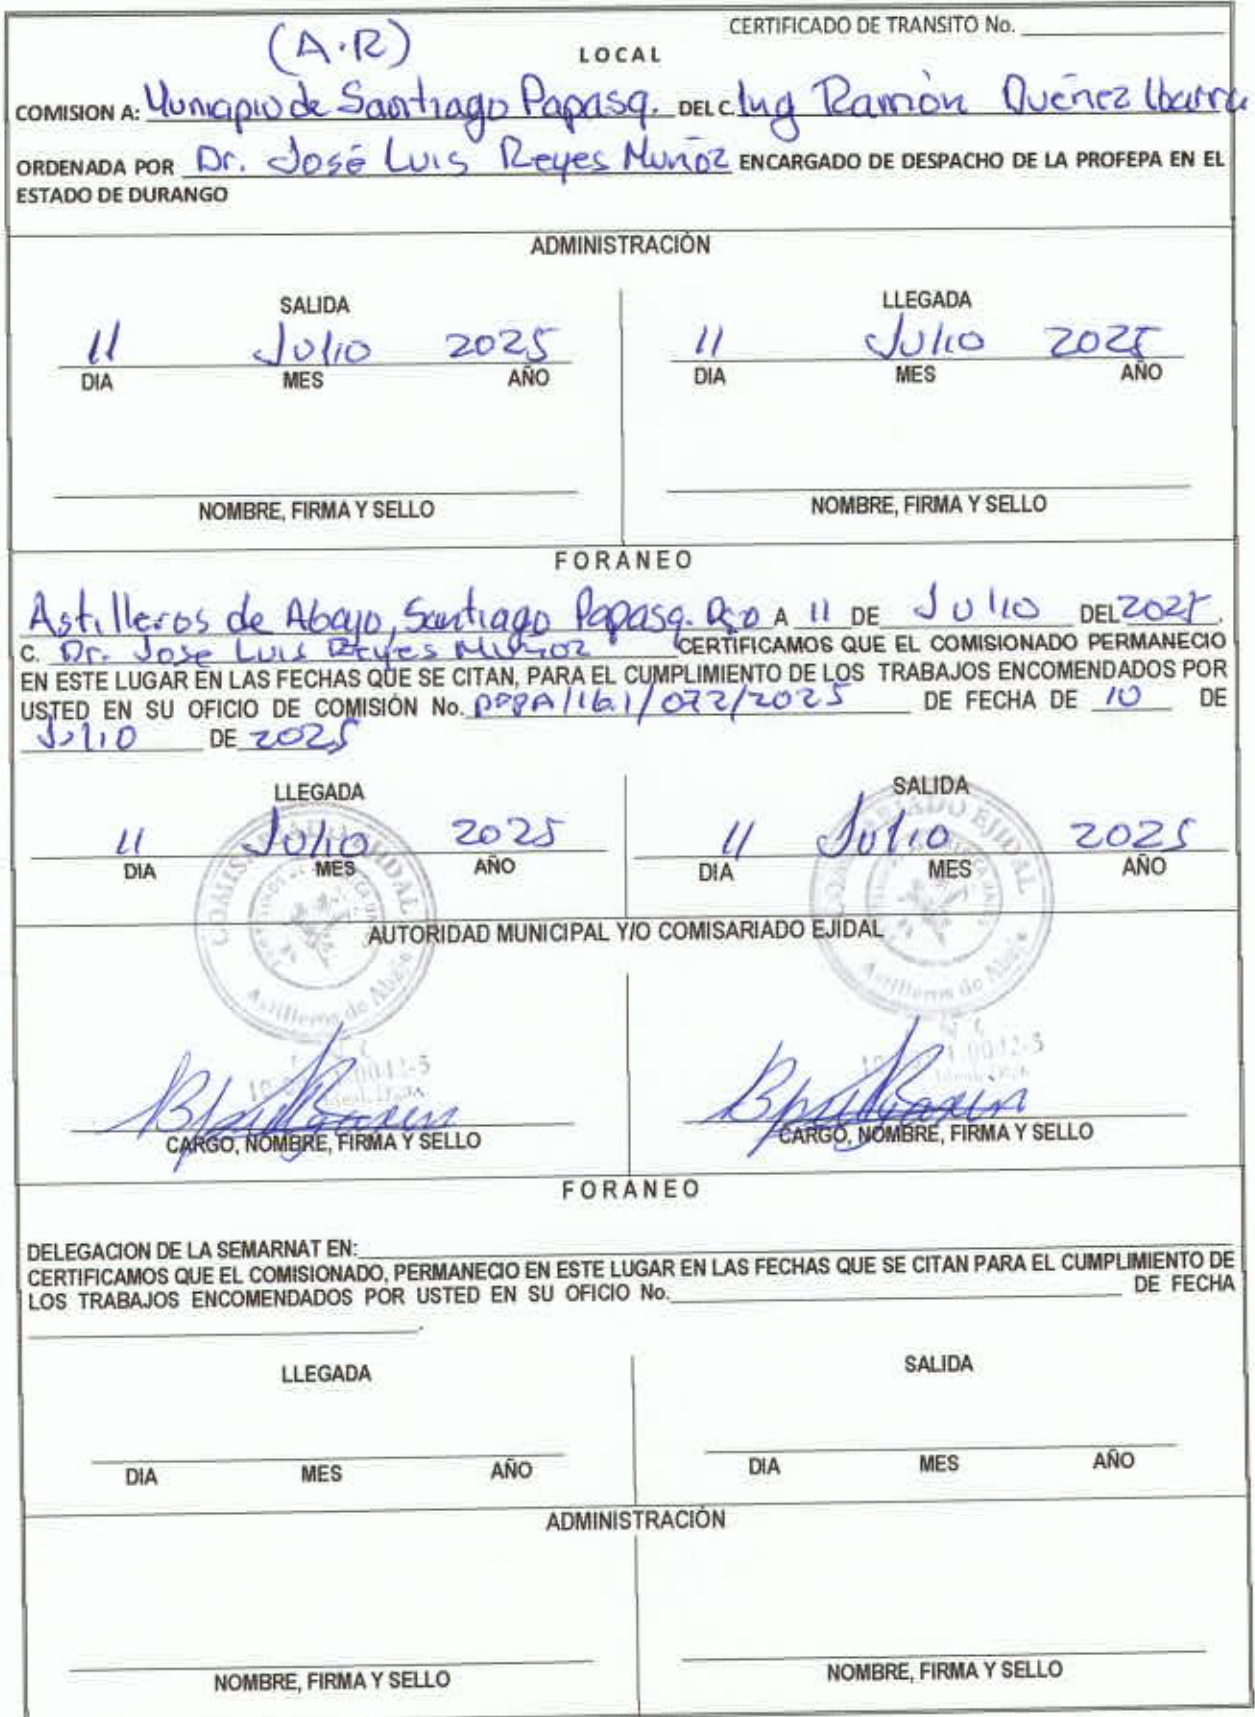 CERTIFICADO DE TRANSITO No.
(A.R)
LOCAL
COMISION A: Municipio de Santiago Papasq. DEL C. Ing Ramón Quéñez Ibarra
ORDENADA POR Dr. José Luis Reyes Muñoz ENCARGADO DE DESPACHO DE LA PROFEPA EN EL
ESTADO DE DURANGO
ADMINISTRACIÓN
SALIDA LLEGADA
11 Julio 2025 11 Julio 2025
DIA MES AÑO DIA MES AÑO
NOMBRE, FIRMA Y SELLO NOMBRE, FIRMA Y SELLO
FORANEO
Astilleros de Abajo, Santiago Papasq. Dgo A 11 DE Julio DEL 2025.
C. Dr. Jose Luis Reyes Muñoz CERTIFICAMOS QUE EL COMISIONADO PERMANECIO
EN ESTE LUGAR EN LAS FECHAS QUE SE CITAN, PARA EL CUMPLIMIENTO DE LOS TRABAJOS ENCOMENDADOS POR
USTED EN SU OFICIO DE COMISIÓN No. PFPA/16.1/072/2025 DE FECHA DE 10 DE
Julio DE 2025
LLEGADA SALIDA
11 Julio 2025 11 Julio 2025
DIA MES AÑO DIA MES AÑO
COMISARIADO EJIDAL COMISARIADO EJIDAL
AUTORIDAD MUNICIPAL Y/O COMISARIADO EJIDAL
Astilleros de Abajo Astilleros de Abajo
CARGO, NOMBRE, FIRMA Y SELLO CARGO, NOMBRE, FIRMA Y SELLO
FORANEO
DELEGACION DE LA SEMARNAT EN:
CERTIFICAMOS QUE EL COMISIONADO, PERMANECIO EN ESTE LUGAR EN LAS FECHAS QUE SE CITAN PARA EL CUMPLIMIENTO DE
LOS TRABAJOS ENCOMENDADOS POR USTED EN SU OFICIO No. DE FECHA
.
LLEGADA SALIDA
DIA MES AÑO DIA MES AÑO
ADMINISTRACIÓN
NOMBRE, FIRMA Y SELLO NOMBRE, FIRMA Y SELLO